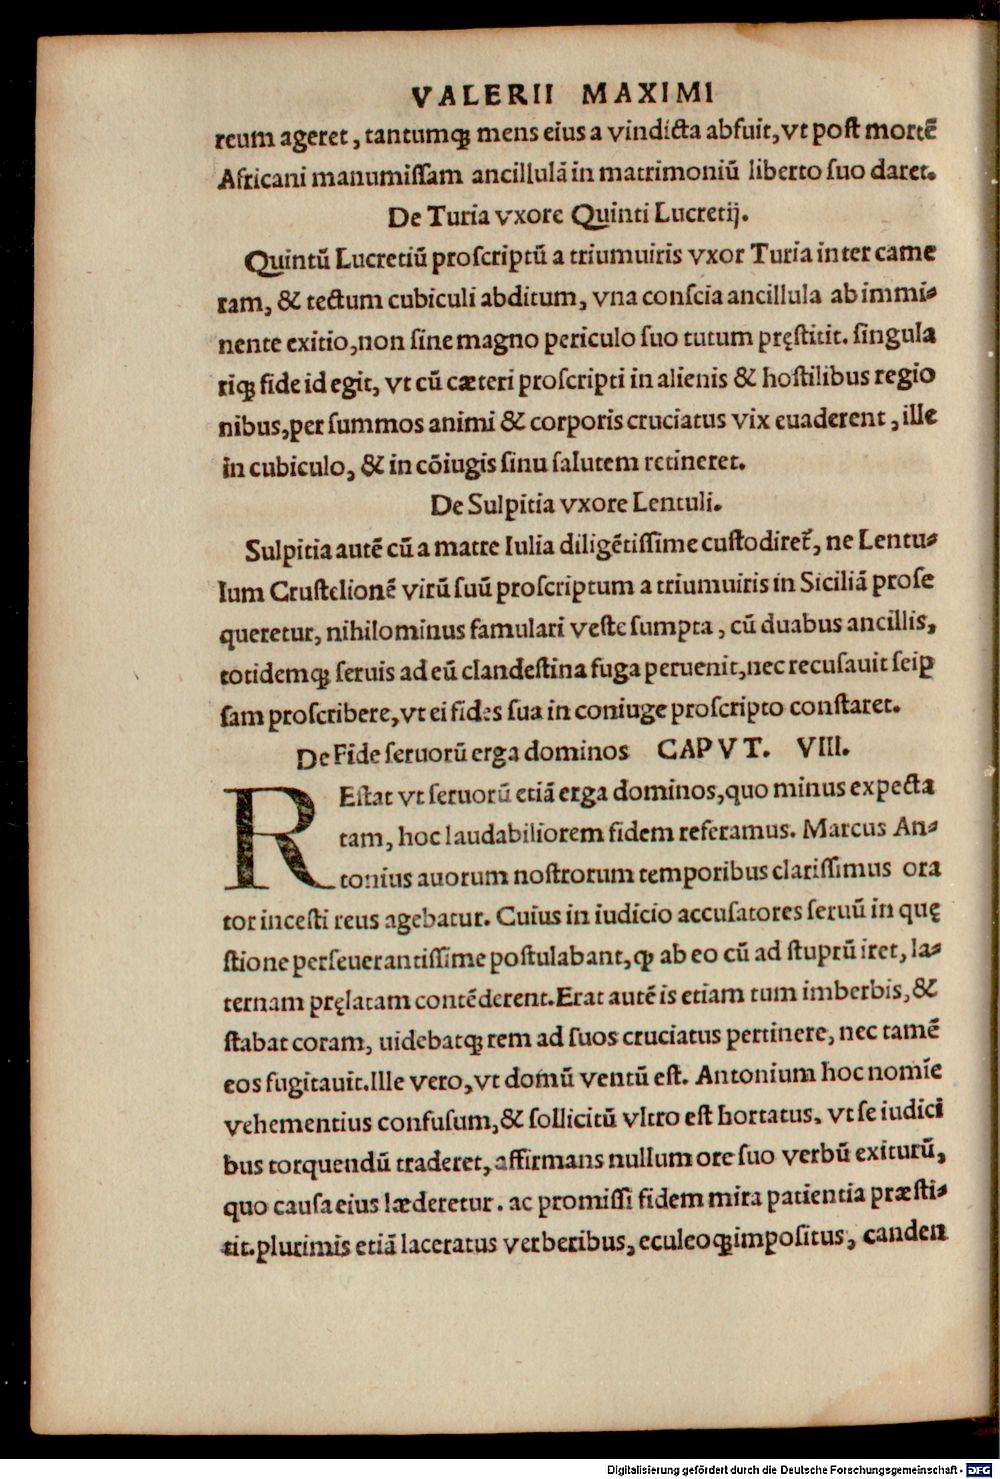 VALERII MAXIMI
reum ageret, tantumq; mens eius a vindicta abfuit, vt post mortē
Africani manumissam ancillulā in matrimoniū liberto suo daret.
De Turia vxore Quinti Lucretij.
Quintū Lucretiū proscriptū a triumuiris vxor Turia inter came
ram, & tectum cubiculi abditum, vna conscia ancillula ab immi-
nente exitio, non sine magno periculo suo tutum pręstitit. singula
riq; fide id egit, vt cū cæteri proscripti in alienis & hostilibus regio
nibus, per summos animi & corporis cruciatus vix euaderent, ille
in cubiculo, & in cōiugis sinu salutem retineret.
De Sulpitia vxore Lentuli.
Sulpitia autē cū a matre Iulia diligētissime custodiret᷑, ne Lentu-
lum Crustelionē virū suū proscriptum a triumuiris in Siciliā prose
queretur, nihilominus famulari veste sumpta, cū duabus ancillis,
totidemq; seruis ad eū clandestina fuga peruenit, nec recusauit seip
sam proscribere, vt ei fides sua in coniuge proscripto constaret.
De Fide seruorū erga dominos CAPVT. VIII.
REstat vt seruorū etiā erga dominos, quo minus expecta
tam, hoc laudabiliorem fidem referamus. Marcus An-
tonius auorum nostrorum temporibus clarissimus ora
tor incesti reus agebatur. Cuius in iudicio accusatores seruū in quę
stione perseuerantissime postulabant, ꝙ ab eo cū ad stuprū iret, la-
ternam pręlatam contēderent. Erat autē is etiam tum imberbis, &
stabat coram, uidebatq; rem ad suos cruciatus pertinere, nec tamē
eos fugitauit. Ille vero, vt domū ventū est. Antonium hoc nomīe
vehementius confusum, & sollicitū vltro est hortatus. vt se iudici
bus torquendū traderet, affirmans nullum ore suo verbū exiturū,
quo causa eius læderetur. ac promissi fidem mira patientia præsti-
tit. plurimis etiā laceratus verberibus, eculeoq; impositus, canden
Digitalisierung gefördert durch die Deutsche Forschungsgemeinschaft - DFG